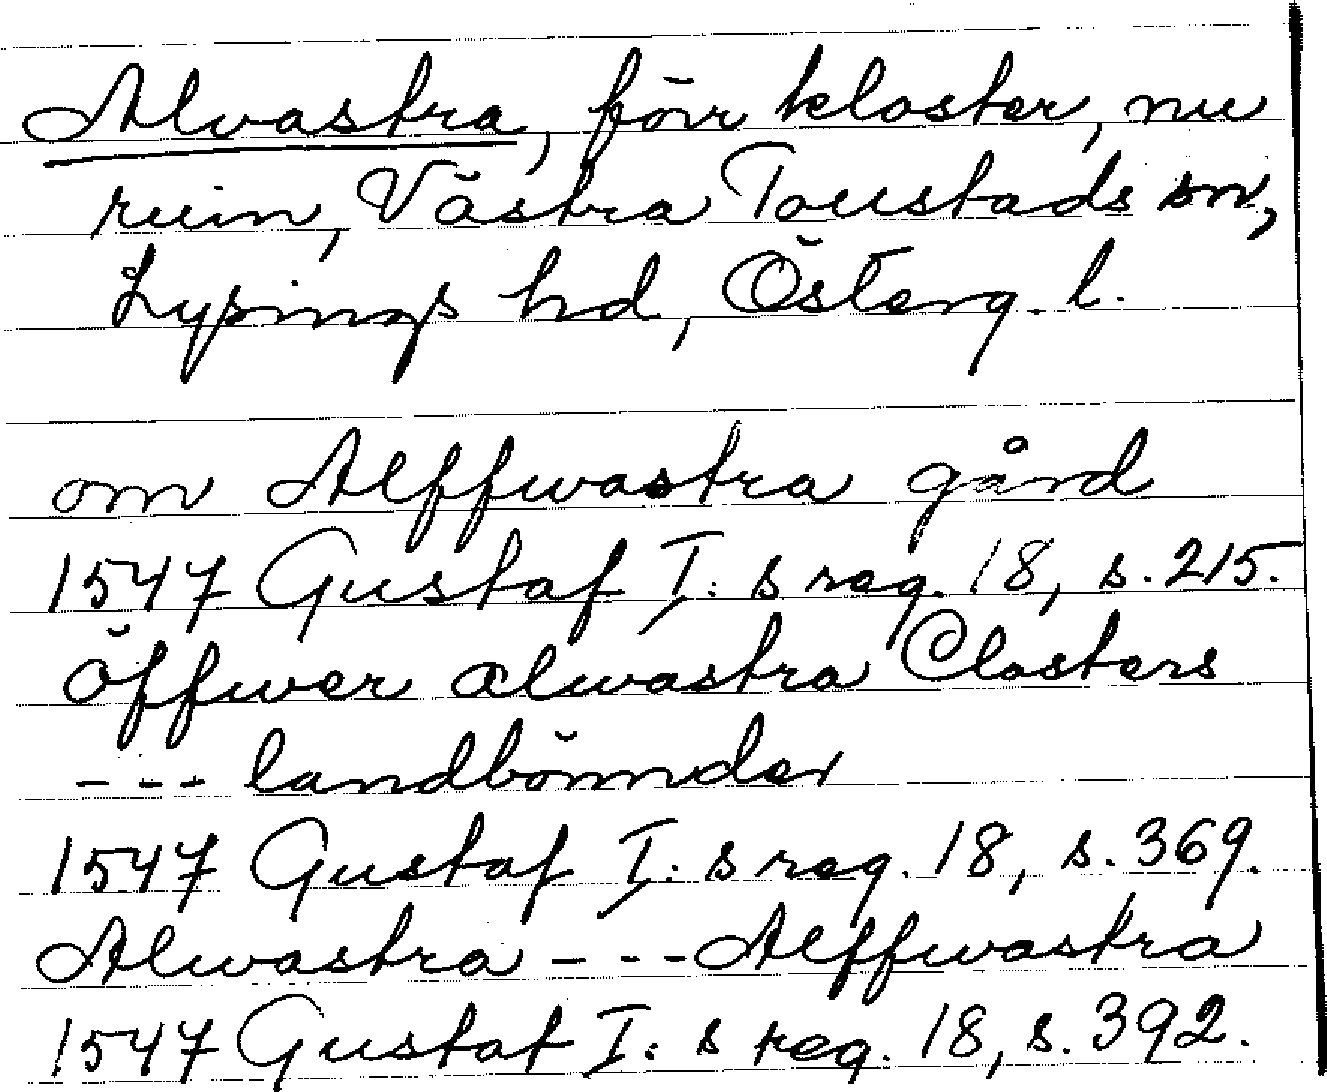 Alvastra, förr kloster, nu
ruin, Västra Toustads sn,
Lysings hd, Österg. l.
om Alffwastra gård
1547 Gustaf I: s reg. 18, s. 215.
Öffwer alwastra Closters
--- landbönnder
1547 Gustaf I: s reg. 18, s. 369.
Alwastra --- Alffwastra
1547 Gustaf I: s reg. 18, s. 392.